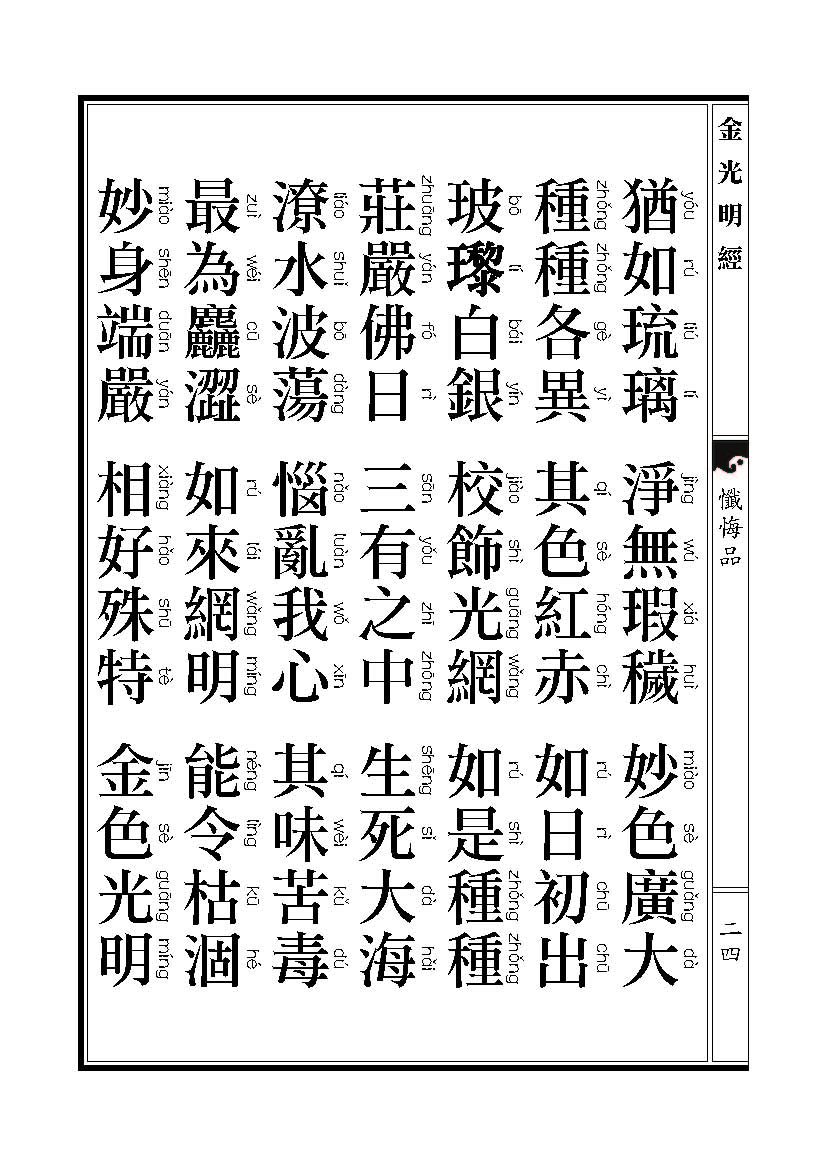 金光明經
懺悔品
二四
yóu rú liú lí jìng wú xiá huì miào sè guǎng dà
猶如琉璃 淨無瑕穢 妙色廣大
zhǒng zhǒng gè yì qí sè hóng chì rú rì chū chū
種種各異 其色紅赤 如日初出
bō lí bái yín jiào shì guāng wǎng rú shì zhǒng zhǒng
玻瓈白銀 校飾光網 如是種種
zhuāng yán fó rì sān yǒu zhī zhōng shēng sǐ dà hǎi
莊嚴佛日 三有之中 生死大海
liáo shuǐ bō dàng nǎo luàn wǒ xīn qí wèi kǔ dú
潦水波蕩 惱亂我心 其味苦毒
zuì wéi cū sè rú lái wǎng míng néng lìng kū hé
最為麤澀 如來網明 能令枯涸
miào shēn duān yán xiàng hǎo shū tè jīn sè guāng míng
妙身端嚴 相好殊特 金色光明